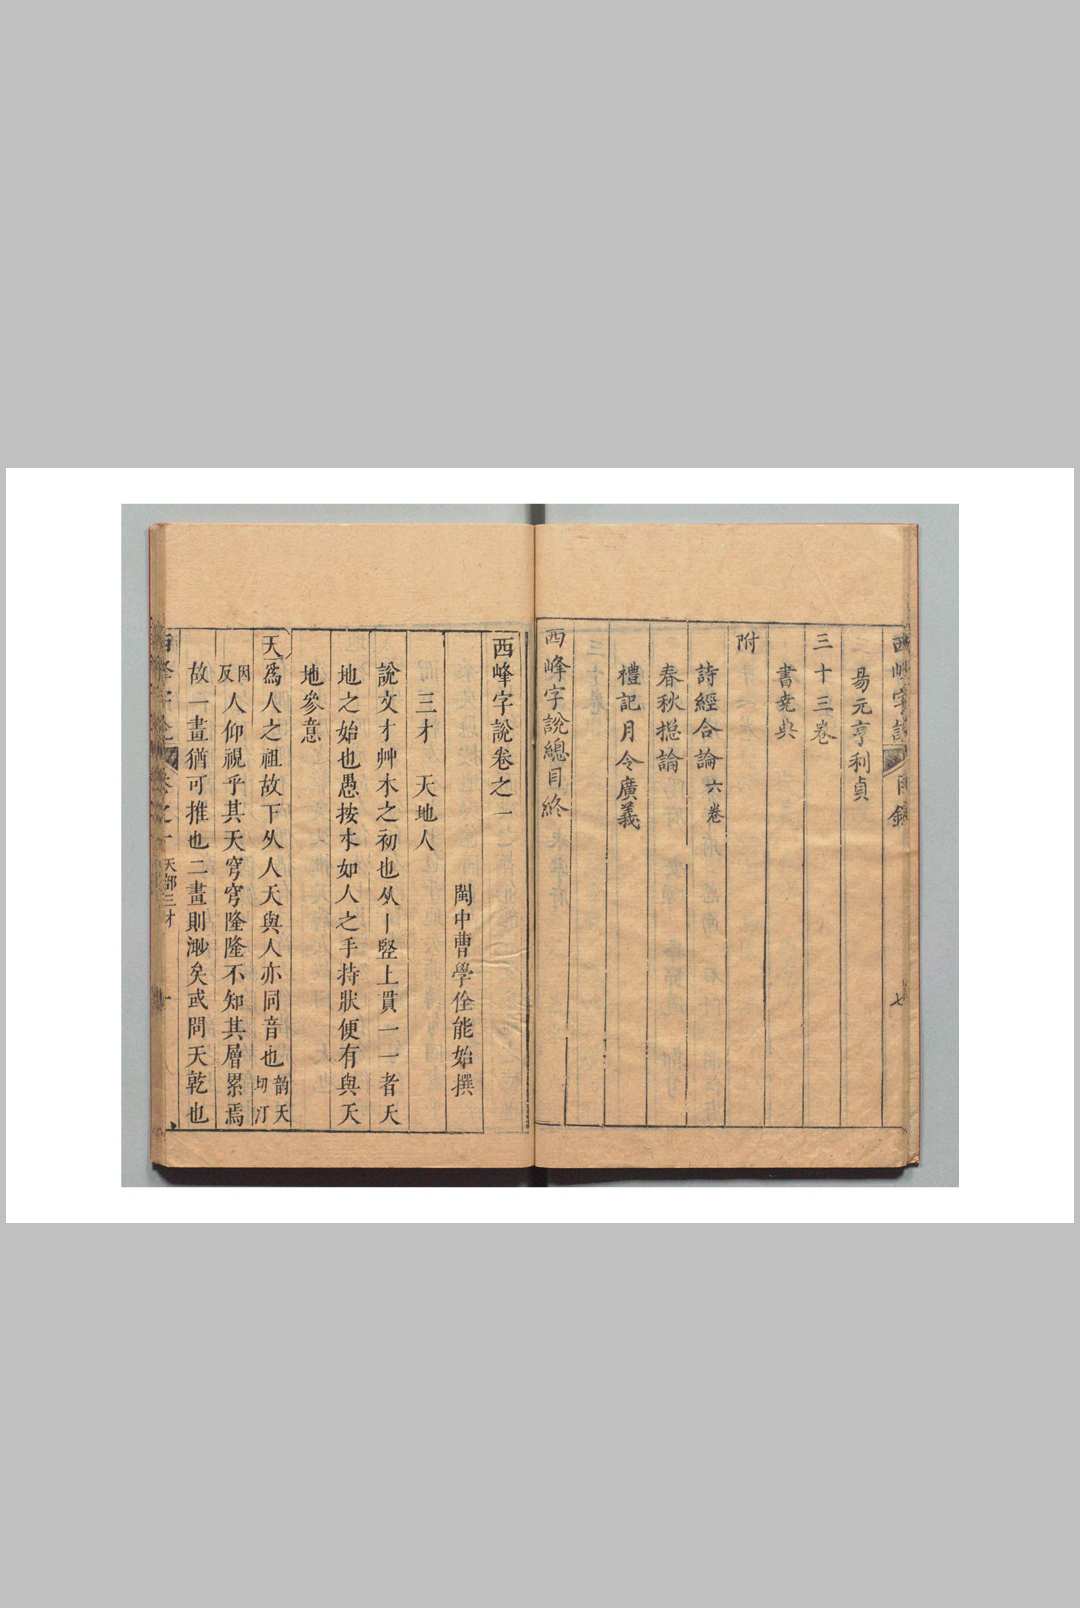 西峰字說 目錄 七
易元亨利貞
三十三卷
書堯典
附
詩經合論六卷
春秋揔論
禮記月令廣義
西峰字說總目終
西峰字說卷之一
閩中曹學佺能始撰
三才 天地人
說文才艸木之初也从丨竪上貫一一者天
地之始也愚按才如人之手持狀便有與天
地參意
天爲人之祖故下从人天與人亦同音也韻天切汀
因反人仰視乎其天穹穹隆隆不知其層累焉
故一畫猶可推也二畫則渺矣或問天乾也
卷之一 天部三才 一